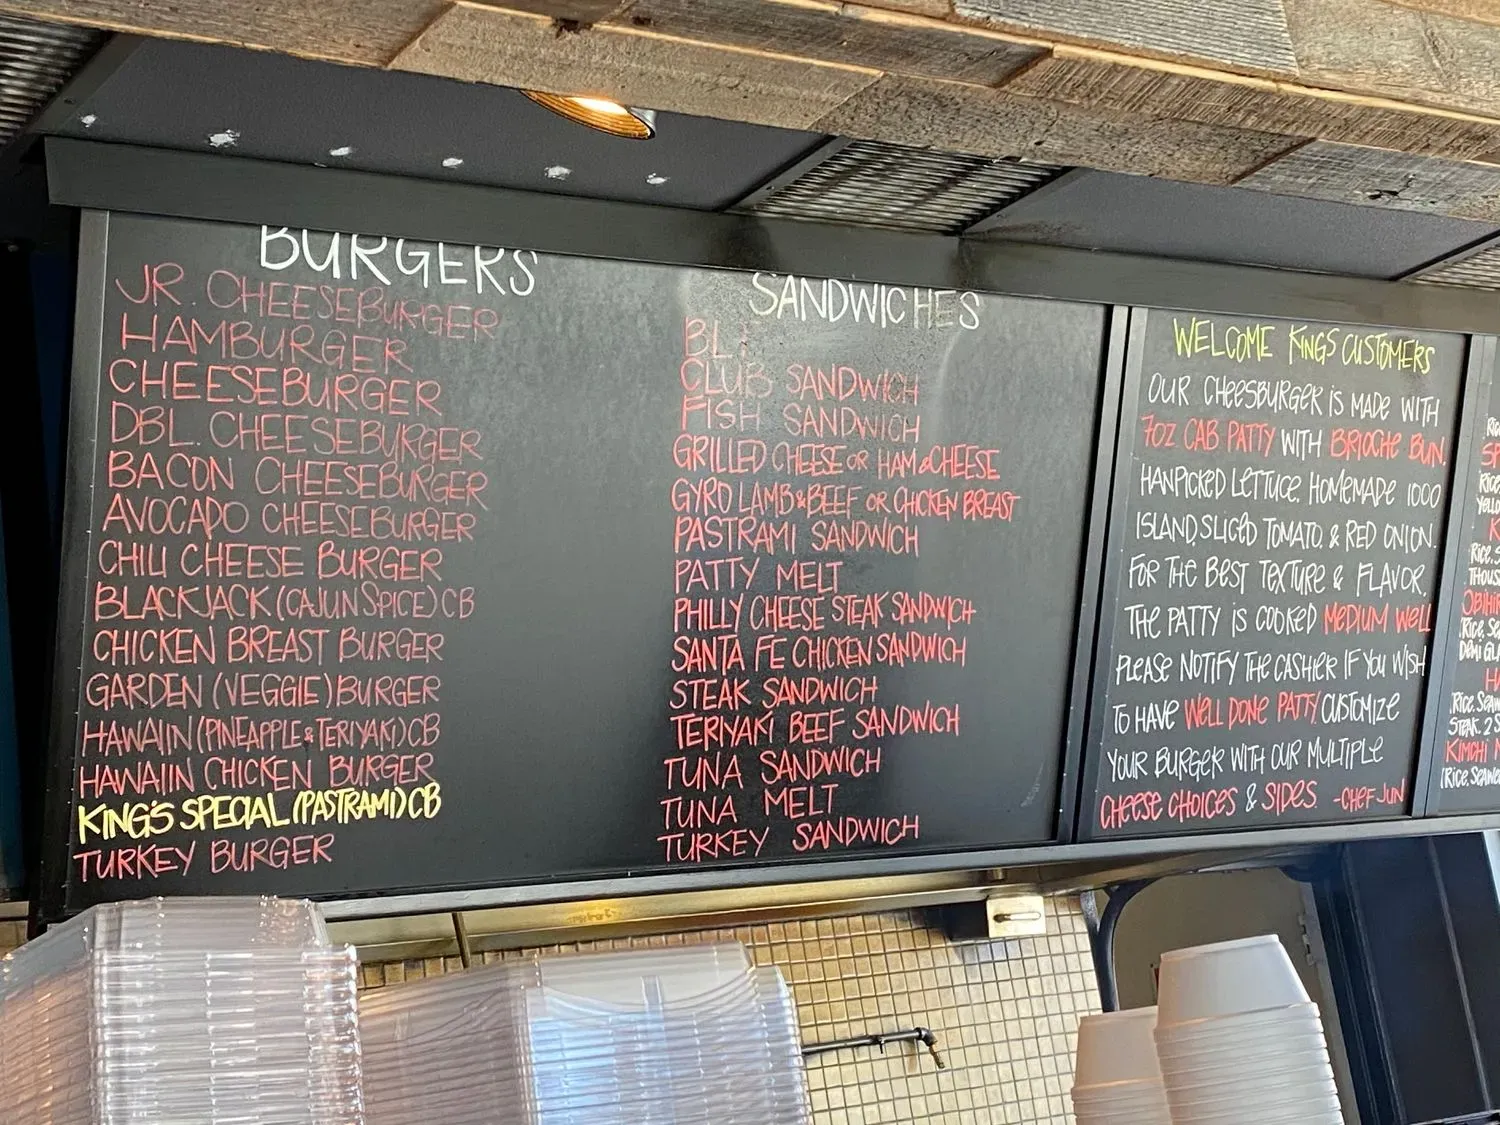 BURGERS
JR. CHEESEBURGER
HAMBURGER
CHEESEBURGER
DBL. CHEESEBURGER
BACON CHEESEBURGER
AVOCADO CHEESEBURGER
CHILI CHEESE BURGER
BLACKJACK (CAJUN SPICE) CB
CHICKEN BREAST BURGER
GARDEN (VEGGIE) BURGER
HAWAIIN (PINEAPPLE & TERIYAKI) CB
HAWAIIN CHICKEN BURGER
KING'S SPECIAL (PASTRAMI) CB
TURKEY BURGER
SANDWICHES
CLUB SANDWICH
FISH SANDWICH
GRILLED CHEESE OR HAM & CHEESE
GYRO LAMB & BEEF OR CHICKEN BREAST
PASTRAMI SANDWICH
PATTY MELT
PHILLY CHEESE STEAK SANDWICH
SANTA FE CHICKEN SANDWICH
STEAK SANDWICH
TERIYAKI BEEF SANDWICH
TUNA SANDWICH
TUNA MELT
TURKEY SANDWICH
WELCOME KINGS CUSTOMERS
OUR CHEESBURGER IS MADE WITH
7OZ CAB PATTY WITH BRIOCHE BUN.
HANPICKED LETTUCE. HOMEMADE 1000
ISLAND, SLICED TOMATO. & RED ONION.
FOR THE BEST TEXTURE & FLAVOR,
THE PATTY IS COOKED MEDIUM WELL
PLEASE NOTIFY THE CASHIER IF YOU WISH
TO HAVE WELL DONE PATTY CUSTOMIZE
YOUR BURGER WITH OUR MULTIPLE
CHEESE CHOICES & SIDES. -CHEF JUN